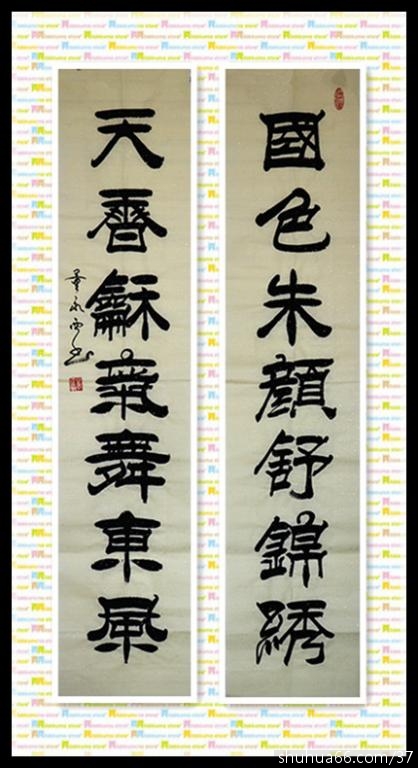 國色朱顏舒錦綉
天香龢氣舞東風
shuhua66.com/37